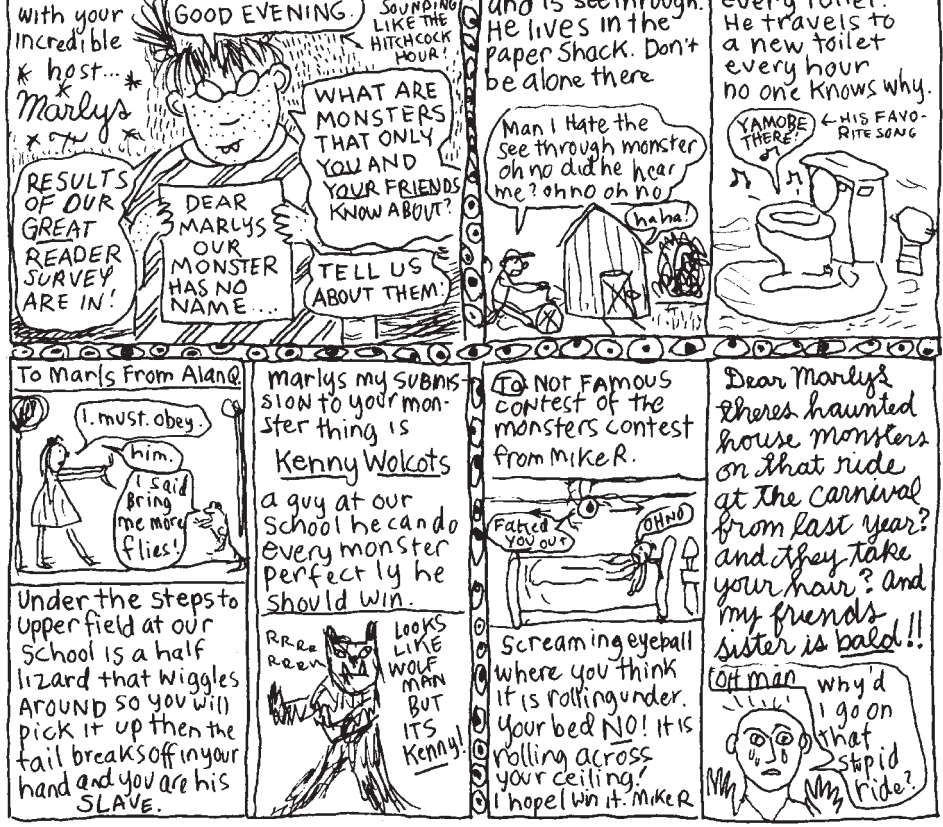 with your
incredible
host...
Marlys
GOOD EVENING.
SOUNDING
LIKE THE
HITCHCOCK
HOUR!
RESULTS
OF OUR
GREAT
READER
SURVEY
ARE IN!
DEAR
MARLYS
OUR
MONSTER
HAS NO
NAME....
WHAT ARE
MONSTERS
THAT ONLY
YOU AND
YOUR FRIENDS
KNOW ABOUT?
TELL US
ABOUT THEM!
and is see through.
He lives in the
paper Shack. Don't
be alone there
Man I Hate the
see through monster
oh no did he hear
me? oh no oh no
haha!
every toilet.
He travels to
a new toilet
every hour
no one knows why.
YAMOBE
THERE!
← HIS FAVO-
RITE SONG
To Marls From Alan Q.
I. must. obey.
him.
I said
Bring
me more
flies!
Under the steps to
upperfield at our
School is a half
lizard that wiggles
AROUND so you will
pick it up then the
tail breaks off in your
hand and you are his
SLAVE.
Marlys my SUBMIS-
SION to your mon-
ster thing is
Kenny Wolcots
a guy at our
School he can do
every monster
perfectly he
should win.
RRRR
RRRR
LOOKS
LIKE
WOLF
MAN
BUT
ITS
Kenny!
To NOT FAMOUS
CONTEST OF THE
monsters contest
from Mike R.
Faked
YOU OUT
OH NO
Screaming eyeball
where you think
it is rolling under.
Your bed NO! it is
rolling across
your ceiling!
I hope I win it. Mike R
Dear Marlys
theres haunted
house monsters
on that ride
at the carnival
from last year?
and they take
your hair? And
my friends
sister is bald!!
Oh man
Why'd
I go on
that
stupid
ride?